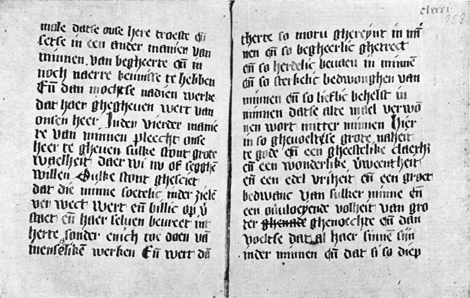 male datse onse here troest eñ
sette in een ander manier van
minnen. van begheerte eñ in
noch naerre kennisse te hebben
Eñ dan mochtse nadien werke
dat haer ghegheuen wert van
onsen heer In der vierder manie
re van minnen pleecht onse
heer te gheuen sulke stont grote
waelheit daer wi nv of segghe
willen Sulke stont ghesciet
dat die minne soetelic inder zielen
ver wect wert eñ bliic op
staet eñ haer seluen beruert int
herte sonder enich toe doen vā
menscelike werken Eñ wert dā
therte so moru ghereynt in mī
nen eñ so begheerlic ghetrect
eñ so herdelic beuaen in minnē
eñ so sterkelic bedwonghen van
minnen eñ so lieflic behelst in
minnen datse alte mael verwō
nen wort mitter minnen Hier
in so ghevoeltse grote naheit
te gode eñ een gheestelike claerhī
eñ een wonderlike vweentheit
eñ een edel vriheit eñ een groet
bedwanc van sulker minne eñ
een ouuloeyende volheit van gro
ter ghenochte eñ dan
voeltse dat al haer sinnē sijn
inder minnen eñ dat si so diep